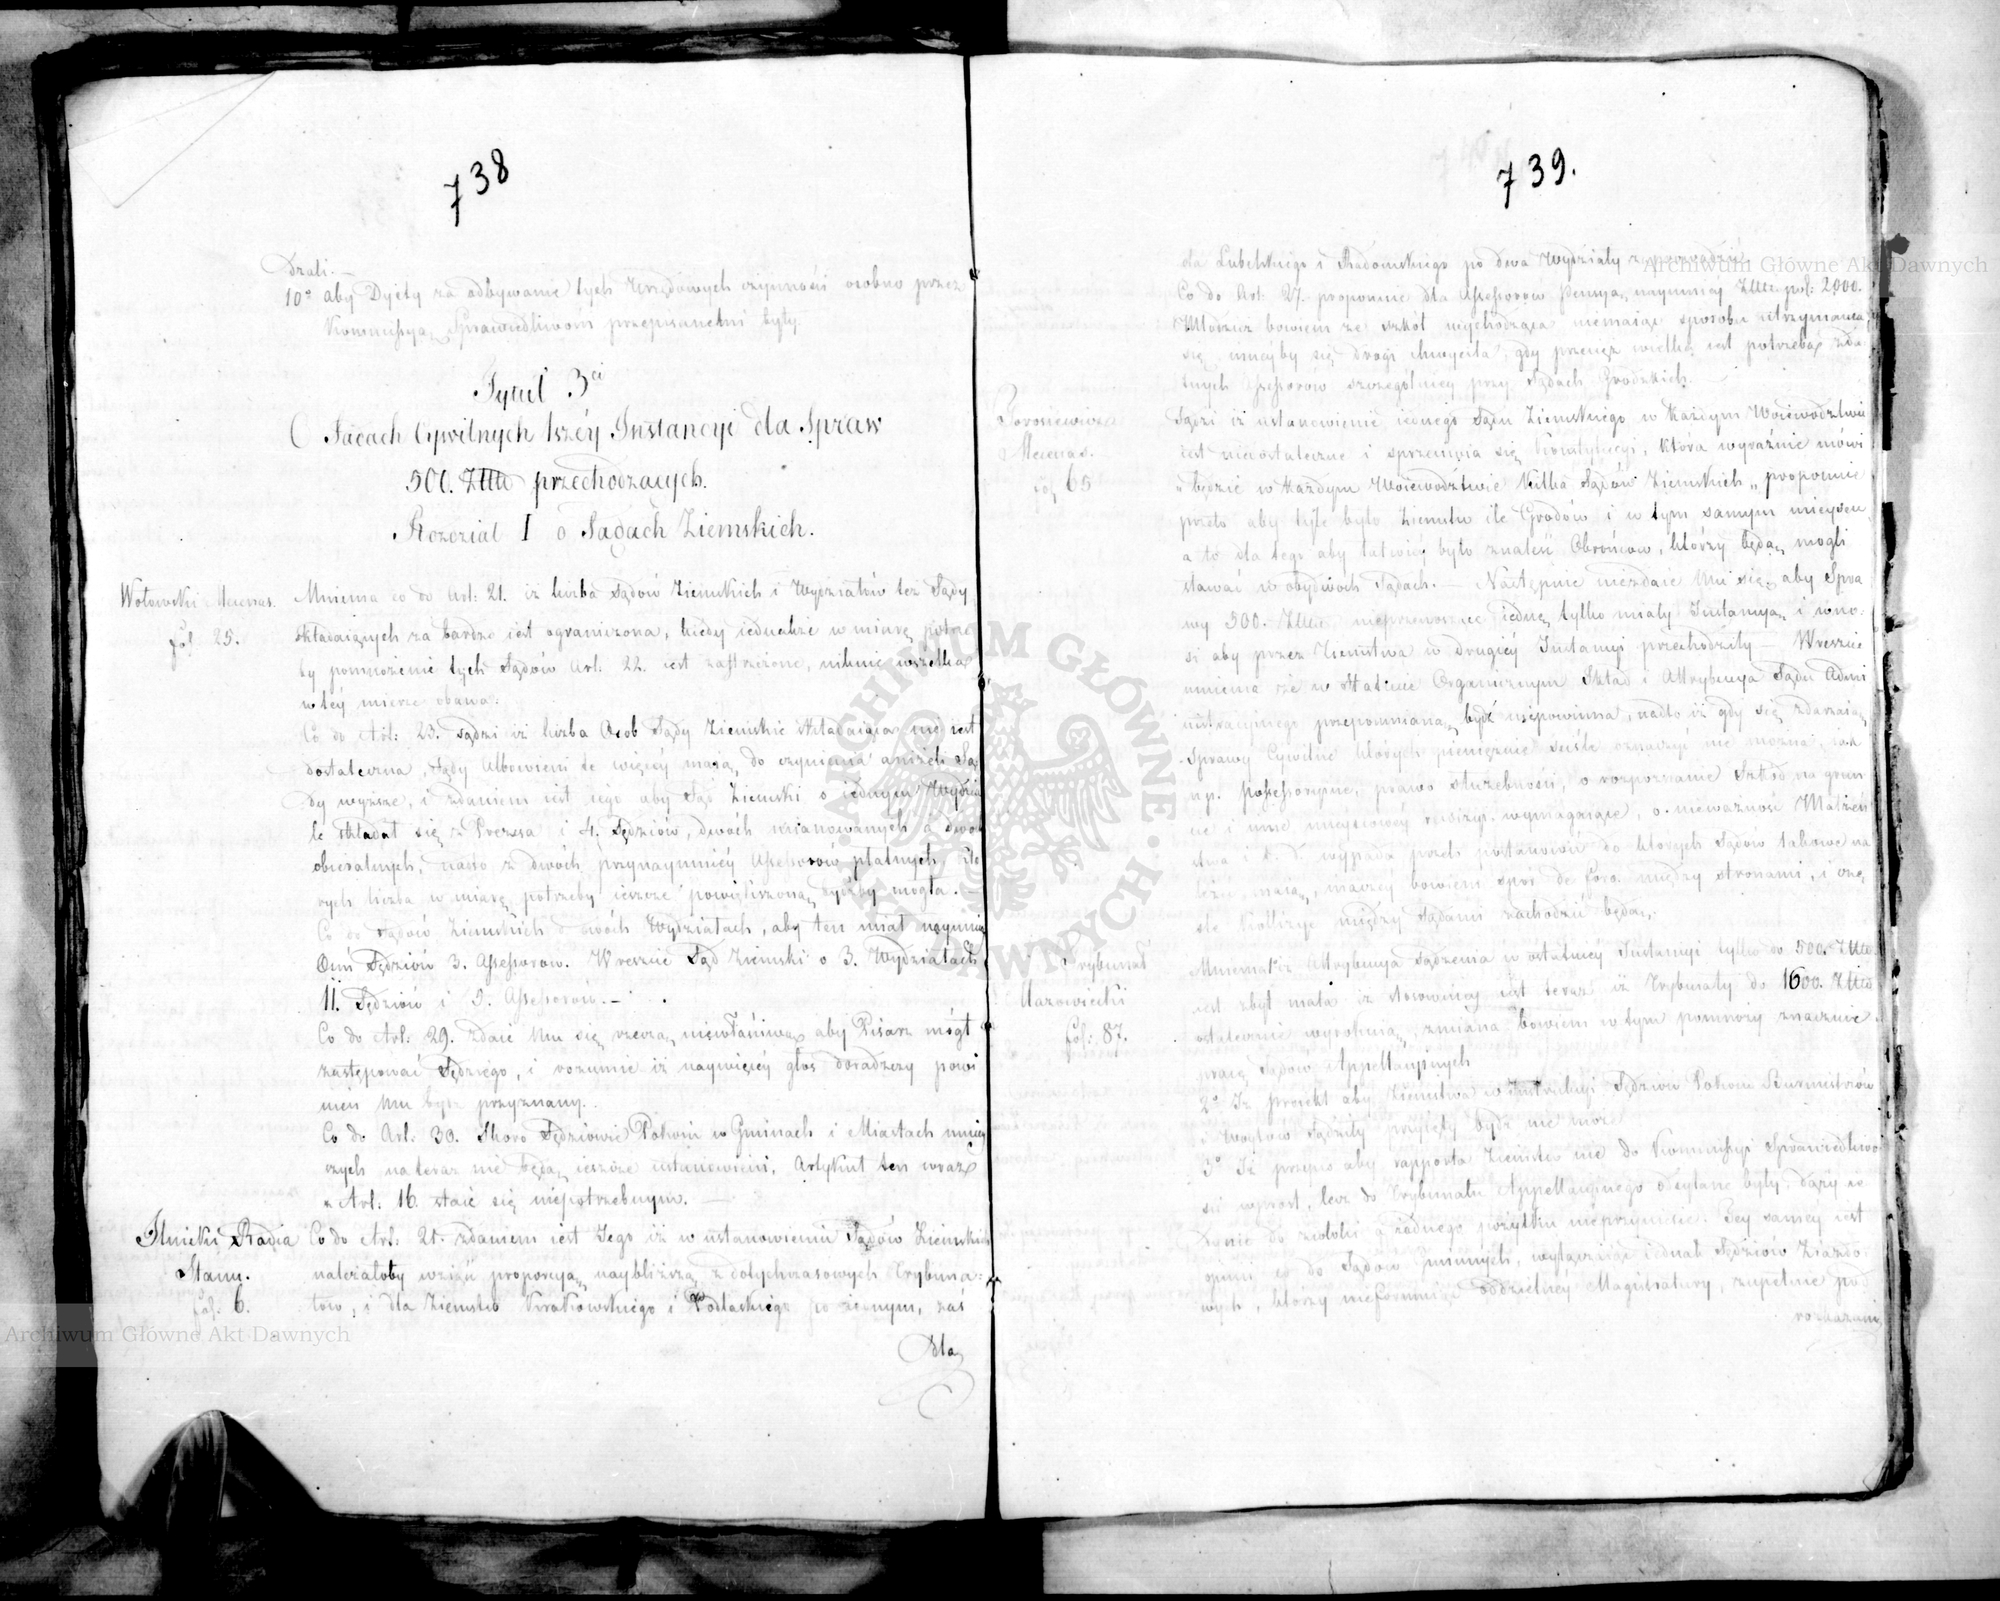 738
dzali.—
10° aby Dyety za odbywanie tych Urzędowych czynności osobno przez
Kommissyą Sprawiedliwości przepisanemi były.
Tytuł 3ci
O Sądach Cywilnych 1széy Instancyi dla Spraw
500. Złłł przechodzących.
Rozdział I o Sądach Ziemskich.
Wołowski Mecenas.
fol. 25.
Mniema co do Art: 21. iż liczba Sądów Ziemskich i Wydziałów też Sądy
składaiących za bardzo iest ograniczona, kiedy iednakże w miarę potrze
by pomnożenie tych Sądów Art: 22. iest zastrzeżone, niknie wszelka
w téy mierze obawa.
Co do Art: 23. sądzi iż liczba Osob Sądy Ziemskie składaiąca nie iest
dostateczna, Sądy Albowiem te więcéy maią do czynienia aniżeli Są
dy wyższe, i zdaniem iest iego aby Sąd Ziemski o iednym Wydzia
le składał się z Prezesa i 4. Sędziów, dwóch mianowanych a dwóch
obieralnych, z dwóch przynaymniéy Assessorów płatnych, któ
rych liczba w miarę potrzeby ieszcze powiększoną bydźby mogła.—
Co do Sądów Ziemskich o dwóch Wydziałach, aby ten miał naymniéy
Ośm Sędziów 3. Assessorów. Wreszcie Sąd Ziemski o 3. Wydziałach
11. Sędziów i 5. Assessorów.—
Co do Art: 29. zdaie mu się rzeczą niewłaściwą aby Pisarz mógł
zastępować Sędziego, i rozumie iż naywięcéy głos doradzczy powi
nien mu bydź przyznany.
Co do Art: 30. Skoro Sędziowie Pokoiu w Gminach i Miastach mniéy
szych na teraz nie będą ieszcze ustanowieni, Artykuł ten wraz
z Art: 16. staie się niepotrzebnym.—
Ilnicki Radca
Stanu.
fol: 6.
Co do Art: 21. zdaniem iest Jego iż w ustanowieniu Sądów Ziemskich
należałoby wziąć proporcyą naybliższą z dotychczasowych Trybuna-
łów, i dla Ziemstw Krakowskiego i Podlaskiego po iednym, zaś
dla
739.
dla Lubelskiego i Radomskiego po dwa Wydziały zaprowadzić.
Co do Art: 27. proponuie dla Assessorów Pensya naymniéy Złłł pol: 2000.
Młodzież bowiem ze szkół wychodząca niemaiąc sposobu utrzymania
się inneyby się drogi chwyciła, gdy przecięż wielka iest potrzeba zda-
tnych Assessorów szczególniéy przy Sądach Grodzkich.
Mecenas.
fol. 65
Sądzi iż ustanowienie iednego Sądu Ziemskiego w każdym Woiewództwie
iest niedostateczne i sprzeciwia się Konstytucyi, która wyraźnie mówi
„będzie w każdym Woiewództwie kilka Sądów Ziemskich„ proponuie
przeto aby tyle było Ziemstw ile Grodów i w tym samym mieyscu,
a to dla tego aby łatwiéy było znaleść Obrońców, którzy będą mogli
stawać w obydwóch Sądach.— Następnie niezdaie mu się aby Spra
wy 500. Złłł nieprzenoszące iednę tylko miały Instancyą i wno-
si aby przez Ziemstwa w drugiéy Instancyi przechodziły.— Wreszcie
mniema że w Statucie Organicznym Skład i Attrybucya Sądu Admi
nistracyinego przepomnianą bydź niepowinna, nadto iż gdy się zdarzaią
Sprawy Cywilne których pieniężnie ściśle oznaczyć nie można, iak
np. possessoryine, prawo służebności, o rozpoznanie Szkód na grun
cie i inne mieyscowéy wizyi wymagaiące, o nieważność Małżeń
stwa i t. d. wypada przeto postanowić do których Sądów takowe na
leżeć maią, inaczéy bowiem spór de foro między stronami, i czę
ste kollizye między Sądami zachodzić będą.
Trybunał
Mazowiecki
fol: 87.
Mniemał iż Attrybucya Sądzenia w ostatniéy Instancyi tylko do 500. Złłł
iest zbyt mała iż stosowniéy iest teraz iż Trybunały do 1600. Złłł
ostatecznie wyrokuią, zmiana bowiem w tym pomnoży znacznie
pracę Sądów Appellacyinych
2° Iż proiekt aby Ziemstwa w Instrukcyi Sędziów Pokoiu Burmistrzów
i Woytów Sądziły przyięty bydź nie może
3° Iż przepis aby rapporta Ziemstw nie do Kommissyi Sprawiedliwo
ści wprost, lecz do Trybunału Appellacyinego odsyłane były, dąży ie
dynie do zwłoki a żadnego pożytku nieprzyniesie. Téy saméy iest
opinii co do Sądów Gminnych, wyłączaiąc iednak Sędziów Ziazdo-
wych, którzy nieformuiąc oddzielnéy Magistratury, zupełnie pod
rozkazami